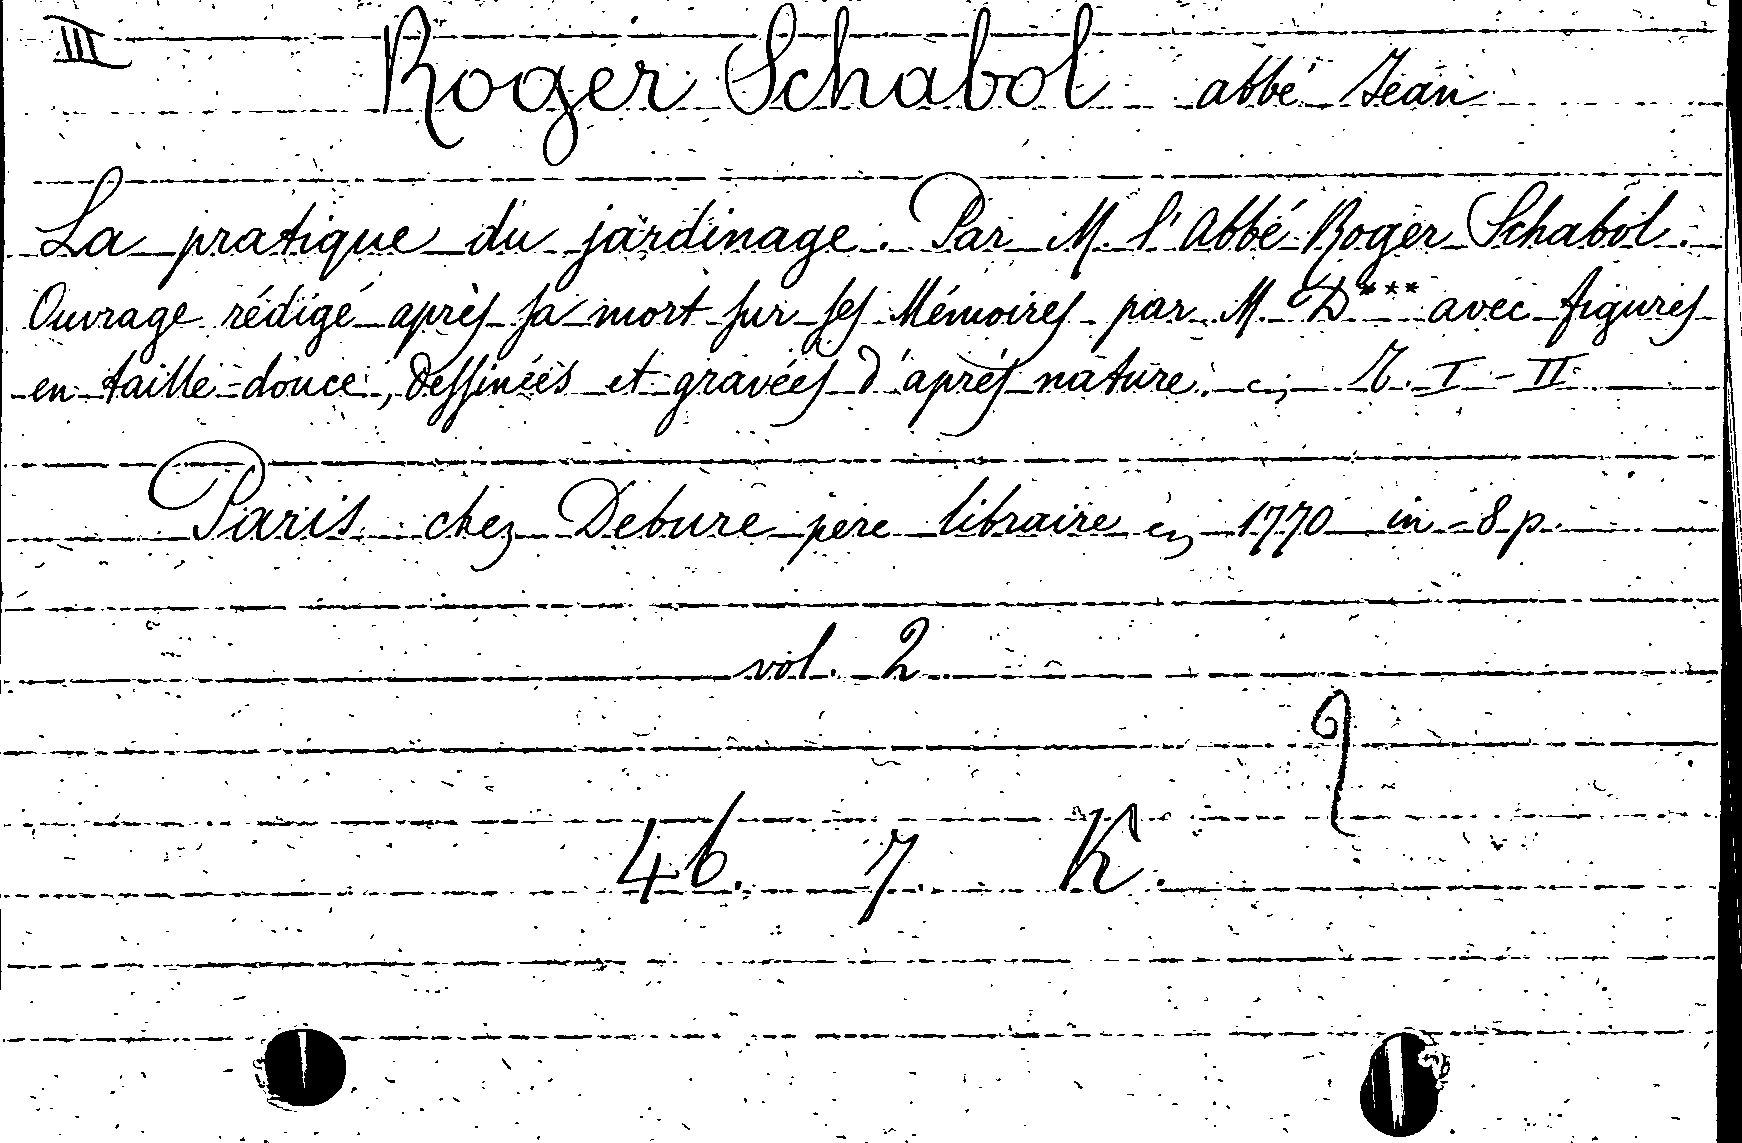 III Roger Schabol abbé Jean
La pratique du jardinage. Par M. l'Abbé Roger Schabol.
Ouvrage rédigé aprèſ ſa mort ſur ſeſ Mémoireſ par M. D*** avec figureſ
en taille-douce, deſſinées et gravéeſ d'aprèſ nature. T. I-II
Paris chez Debure père libraire 1770 in-8 p.
vol. 2
46. 7. K.